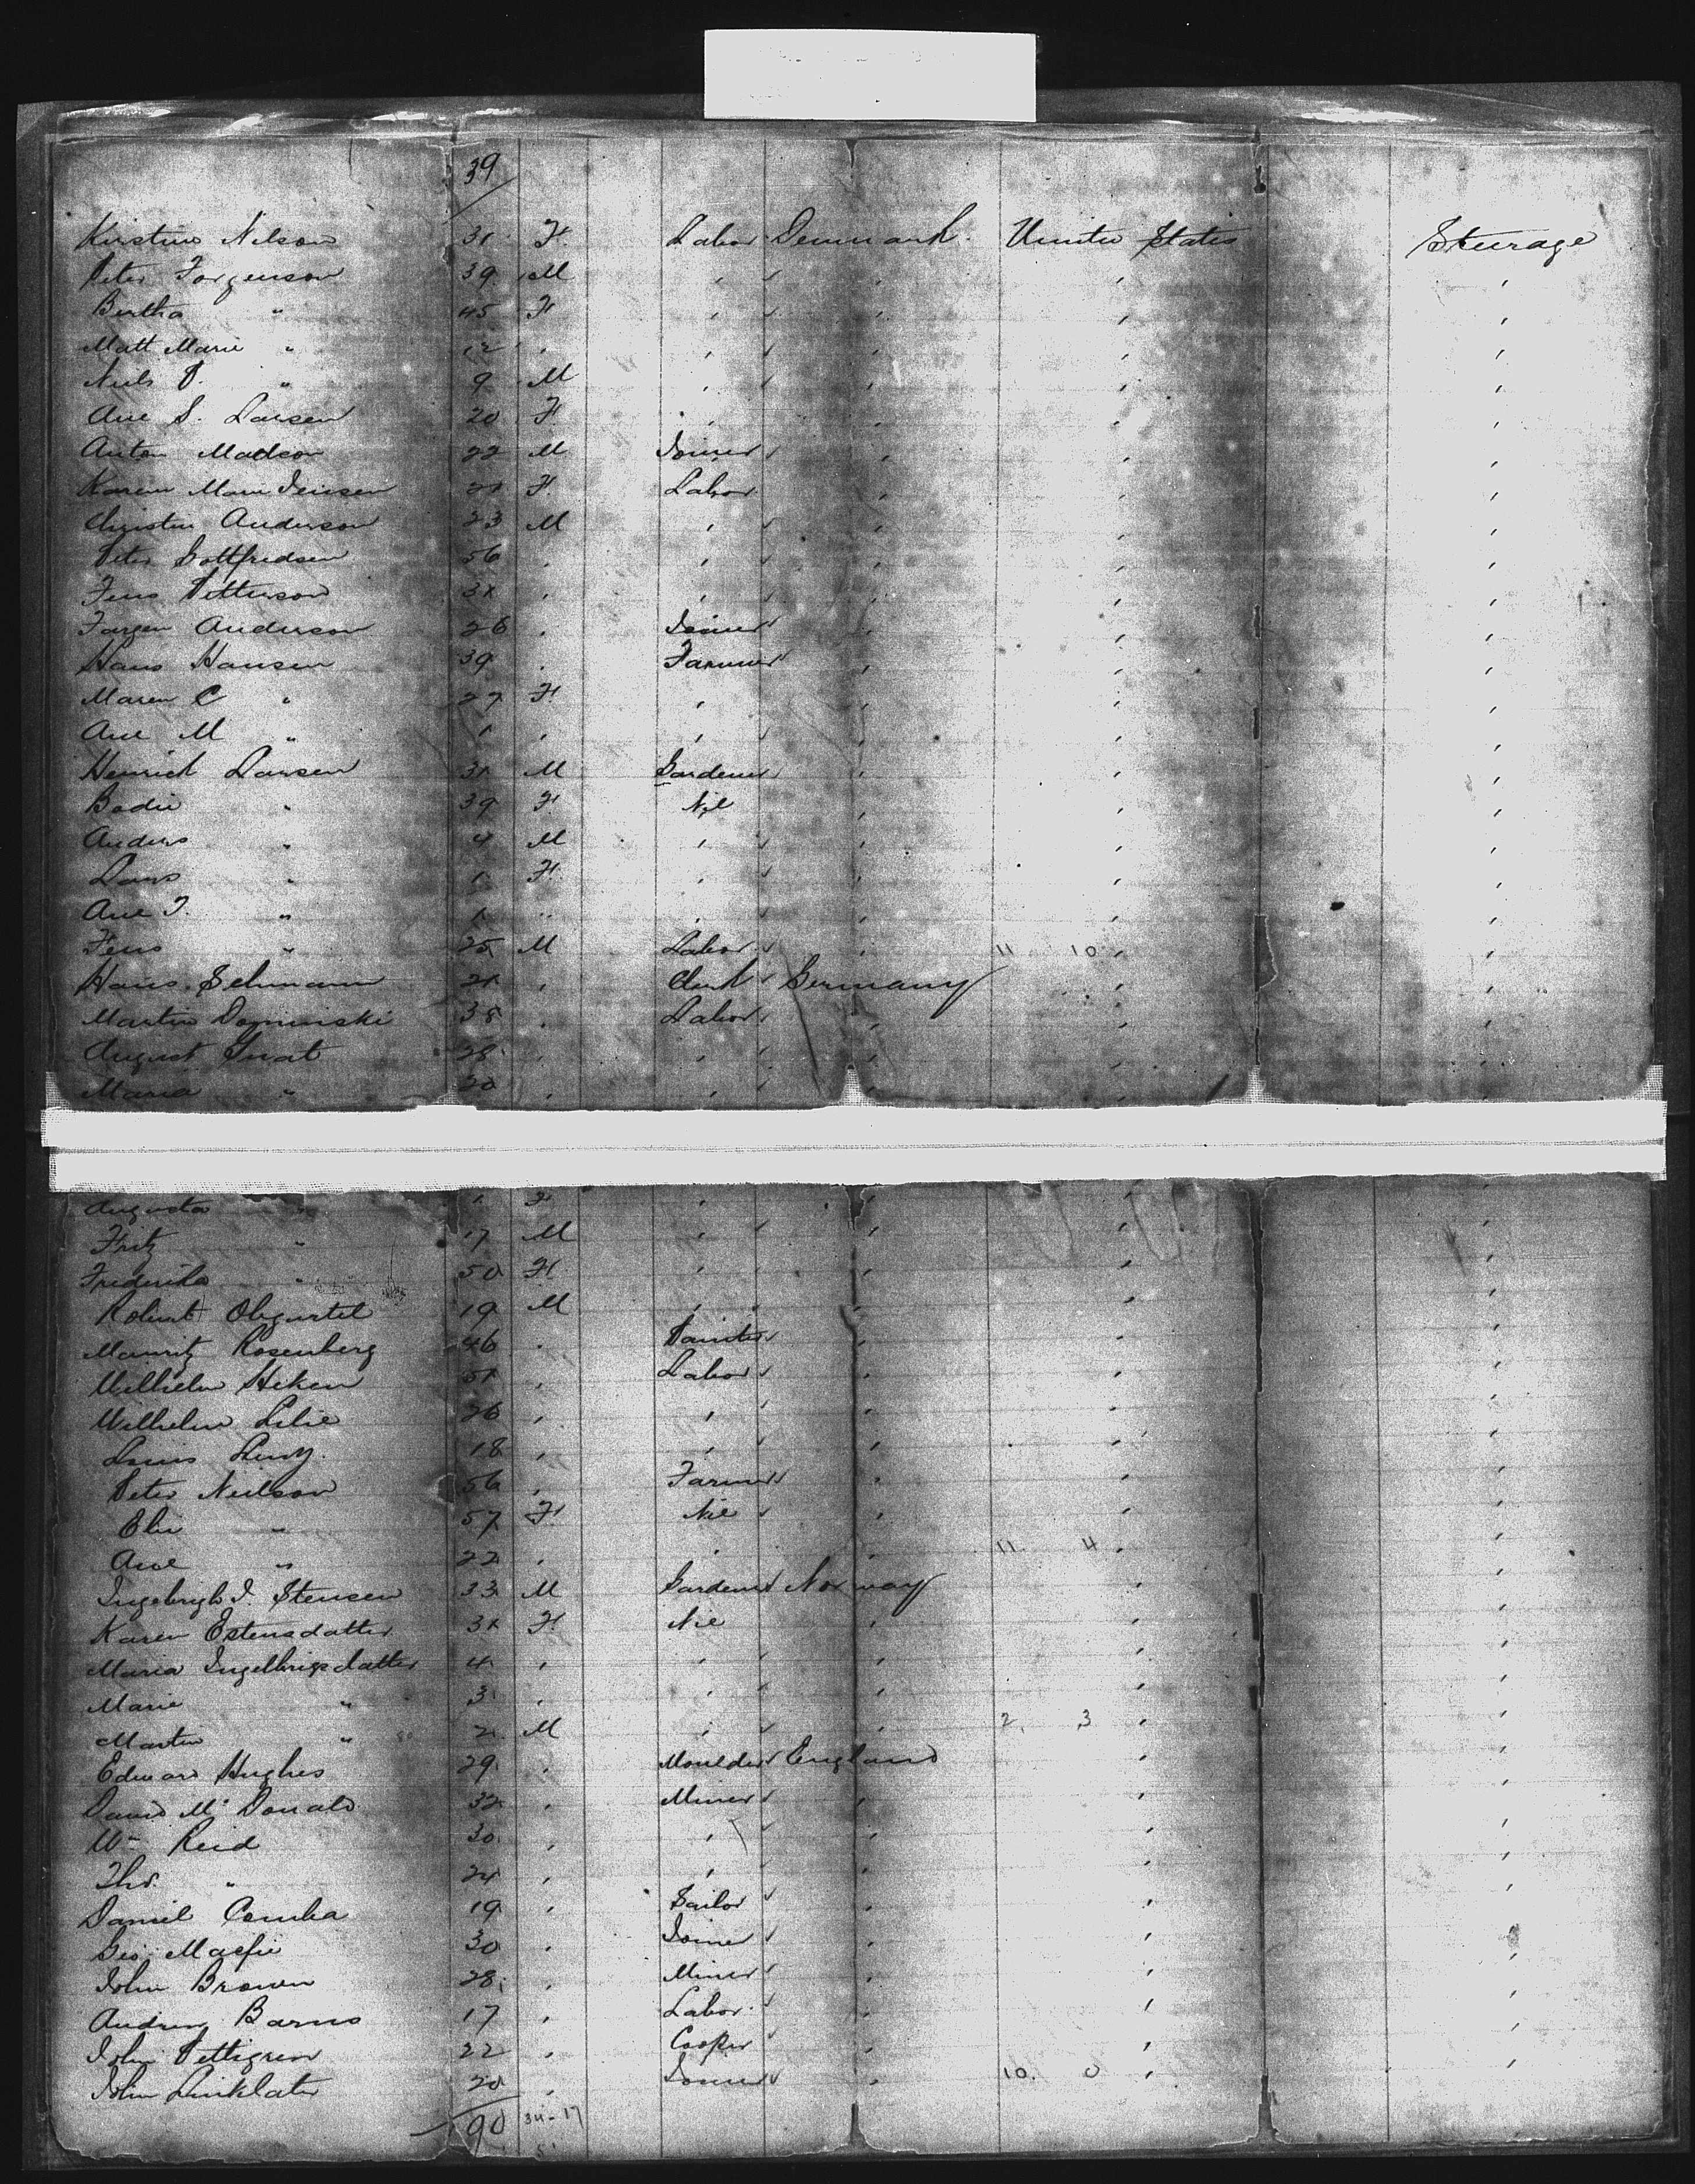 39
Kirstine Nelson 31 F. Labor Denmark. United States Steerage
Peter Jorgenson 39 M " " " "
Bertha " 45 F " " " "
Matt Marie " 12 " " " " "
Niels P. " 9 M " " " "
Ane S. Larsen 20 F. " " " "
Anton Madson 22 M Joiner " " "
Karen Marie Jensen 21 F. Labor " " "
Christen Anderson 23 M " " " "
Peter Gottfredsen 56 " " " " "
Jens Petterson 31 " " " " "
Jorgen Anderson 26 " Joiner " " "
Hans Hansen 39 " Farmer " " "
Maren C " 27 F. " " " "
Ane M " 1 " " " " "
Henrich Larsen 31 M Gardener " " "
Bodie " 39 F. Nil " " "
Anders " 4 M " " " "
Lars " 1 F. " " " "
Ane J. " 1 " " " " "
Jens " 25 M Labor " 11 10 " "
Hans Sehmann 21 " Clerk Germany " "
Martin Dominiski 38 " Labor " " "
August Gnat 28 " " " " "
Maria " 20 " " " "
Augusta " 1 F " " " "
Fritz " 17 M " " " "
Frederika " 50 F " " " "
Robert 19 M " " " "
Mauritz Rosenberg 46 " Painter " " "
Wilhelm Heken 51 " Labor " " "
Wilhelm Lilie 26 " " " " "
Louis 18 " " " " "
Peter Neilson 56 " Farmer " " "
Elie " 57 F. Nil " " "
Ane " 22 " " " 11 4 " "
Ingebrigt J. Stensen 33 M Gardener Norway " "
Karen Estensdatter 31 F. Nil " " "
Maria Ingelbrigsdatter 4 " " " " "
Marie " 3 " " " " "
Martin " 2 M " " 2 3 " "
Edward Hughes 29 " Moulder England " "
David Mc Donald 32 " Miner " " "
Wm Reid 30 " " " " "
Thos. " 24 " " " " "
Daniel Comba 19 " Sailor " " "
Geo. Macfie 30 " Joiner " " "
John Brown 28 " Miner " " "
Andrew Barns 17 " Labor. " " "
John Pettigrew 22 " Cooper " " "
John Linklater 20 " Joiner " 10. 0 "
90 34-17
51